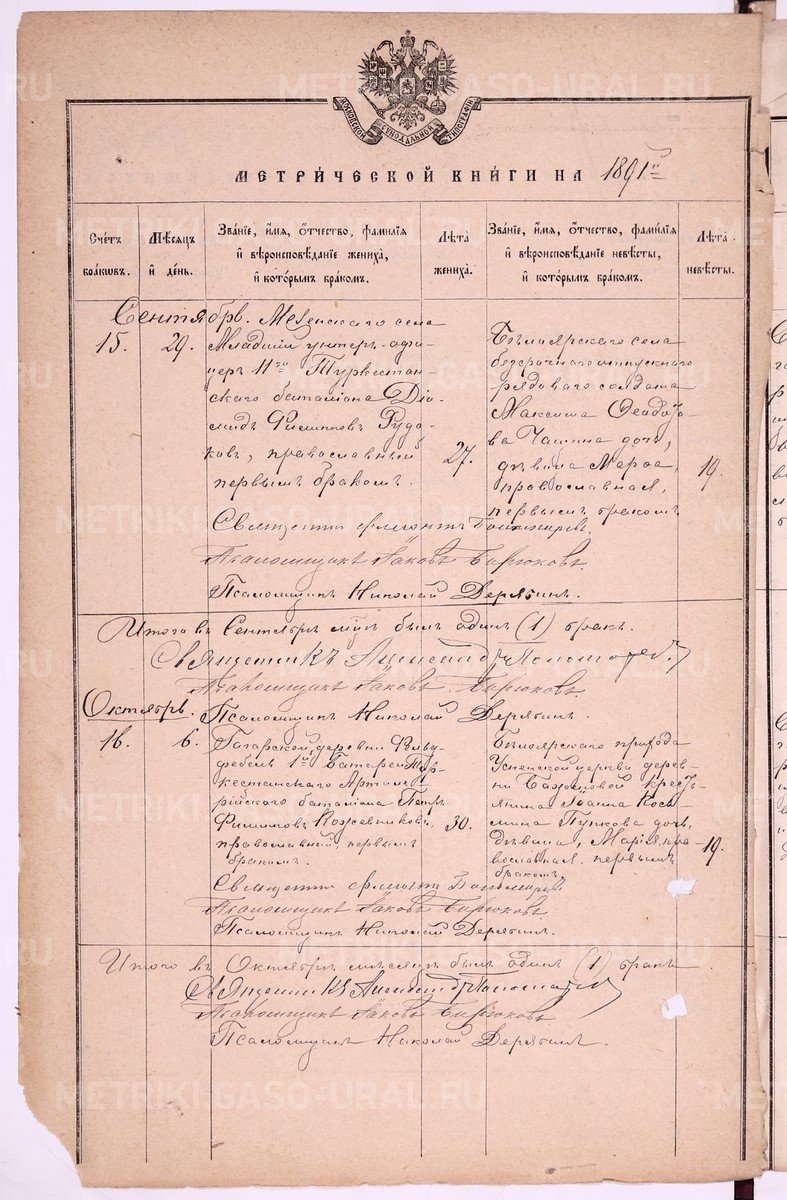 МОСКОВСКОЙ СѴНОДАЛЬНОЙ ТИПОГРАФІИ
МЕТРИ́ЧЕСКОЙ КНИ́ГИ НА 1891й
Счетъ браковъ.
Мѣсяцъ и день.
Званіе, имя, отчество, фамилія и вѣроисповѣданіе жениха, и которымъ бракомъ.
Лѣта жениха.
Званіе, имя, отчество, фамилія и вѣроисповѣданіе невѣсты, и которымъ бракомъ.
Лѣта невѣсты.
Сентябрь.
15.
29.
Мезенскаго села
Младшій унтеръ-офи-
церъ 11го Туркестан-
скаго баталіона Діо-
мидъ Филиповъ Рудо-
ковъ, православный
первымъ бракомъ.
27.
Бѣлоярскаго села
безсрочноотпускнаго
рядоваго солдата
Максима Ѳеодото-
ва Чашина дочь,
дѣвица Марѳа,
православная,
первымъ бракомъ
19.
Священникъ
Псаломщикъ Іаковъ Бирюковъ.
Псаломщикъ Николай Дерябинъ.
Итого въ Сентябрѣ мцѣ былъ одинъ (1) бракъ.
Священникъ Александръ
Псаломщикъ Іаковъ Бирюковъ.
Псаломщикъ Николай Дерябинъ.
Октябрь.
16.
6.
Гагарской деревни Фельд-
фебель 1й Батареи Тур-
кестанскаго Артиле-
рійскаго баталіона Петръ
Филиповъ Кожевниковъ
православный, первымъ
бракомъ.
30.
Бѣлоярскаго прихода
церкви дерев-
ни Баженовой кресть-
янина Іоанна Козь-
мина Пупкова дочь,
дѣвица, Марія, пра-
вославная. первымъ
бракомъ.
19.
Священникъ
Псаломщикъ Іаковъ Бирюковъ
Псаломщикъ Николай Дерябинъ.
Итого въ Октябрѣ мѣсяцѣ былъ одинъ (1) бракъ
Священникъ Александръ
Псаломщикъ Іаковъ Бирюковъ
Псаломщикъ Николай Дерябинъ.
METRIKI.GASO-URAL.RU